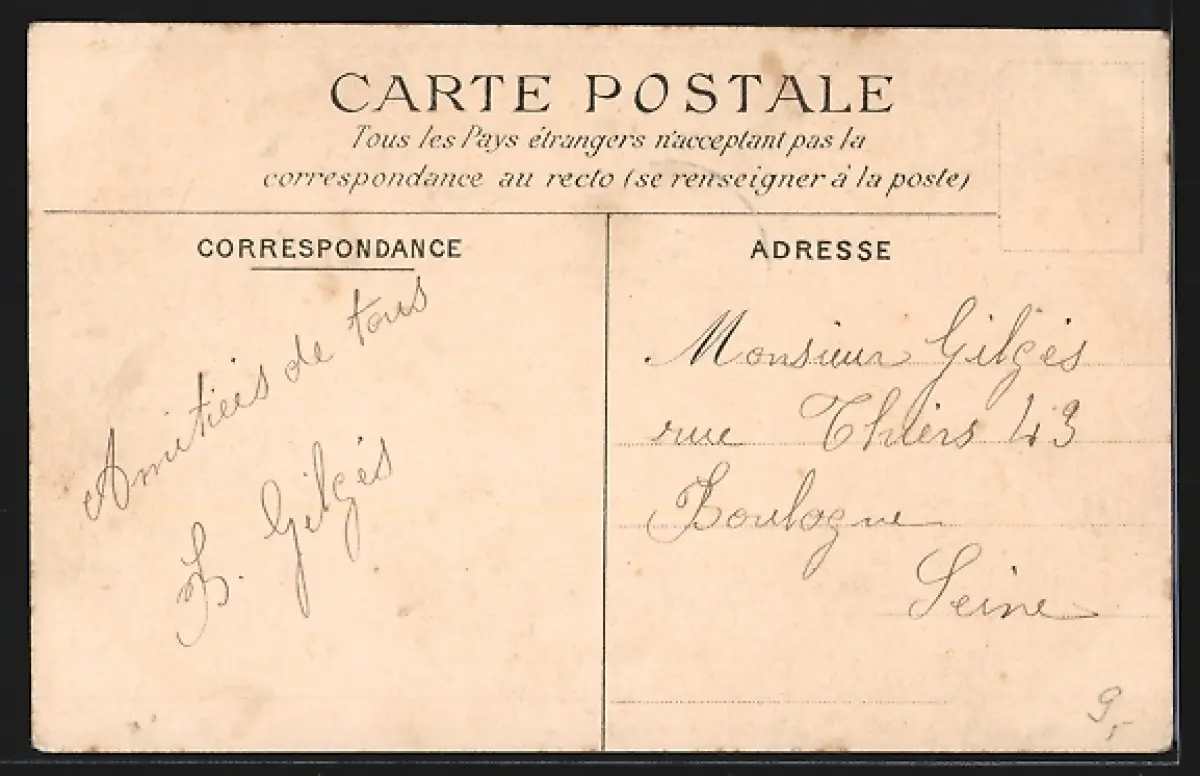 CARTE POSTALE
Tous les Pays étrangers n'acceptant pas la
correspondance au recto (se renseigner à la poste)
CORRESPONDANCE
Amitiés de tous
Gilgès
ADRESSE
Monsieur Gilgès
rue Thiers 43
Boulogne
Seine
9,-